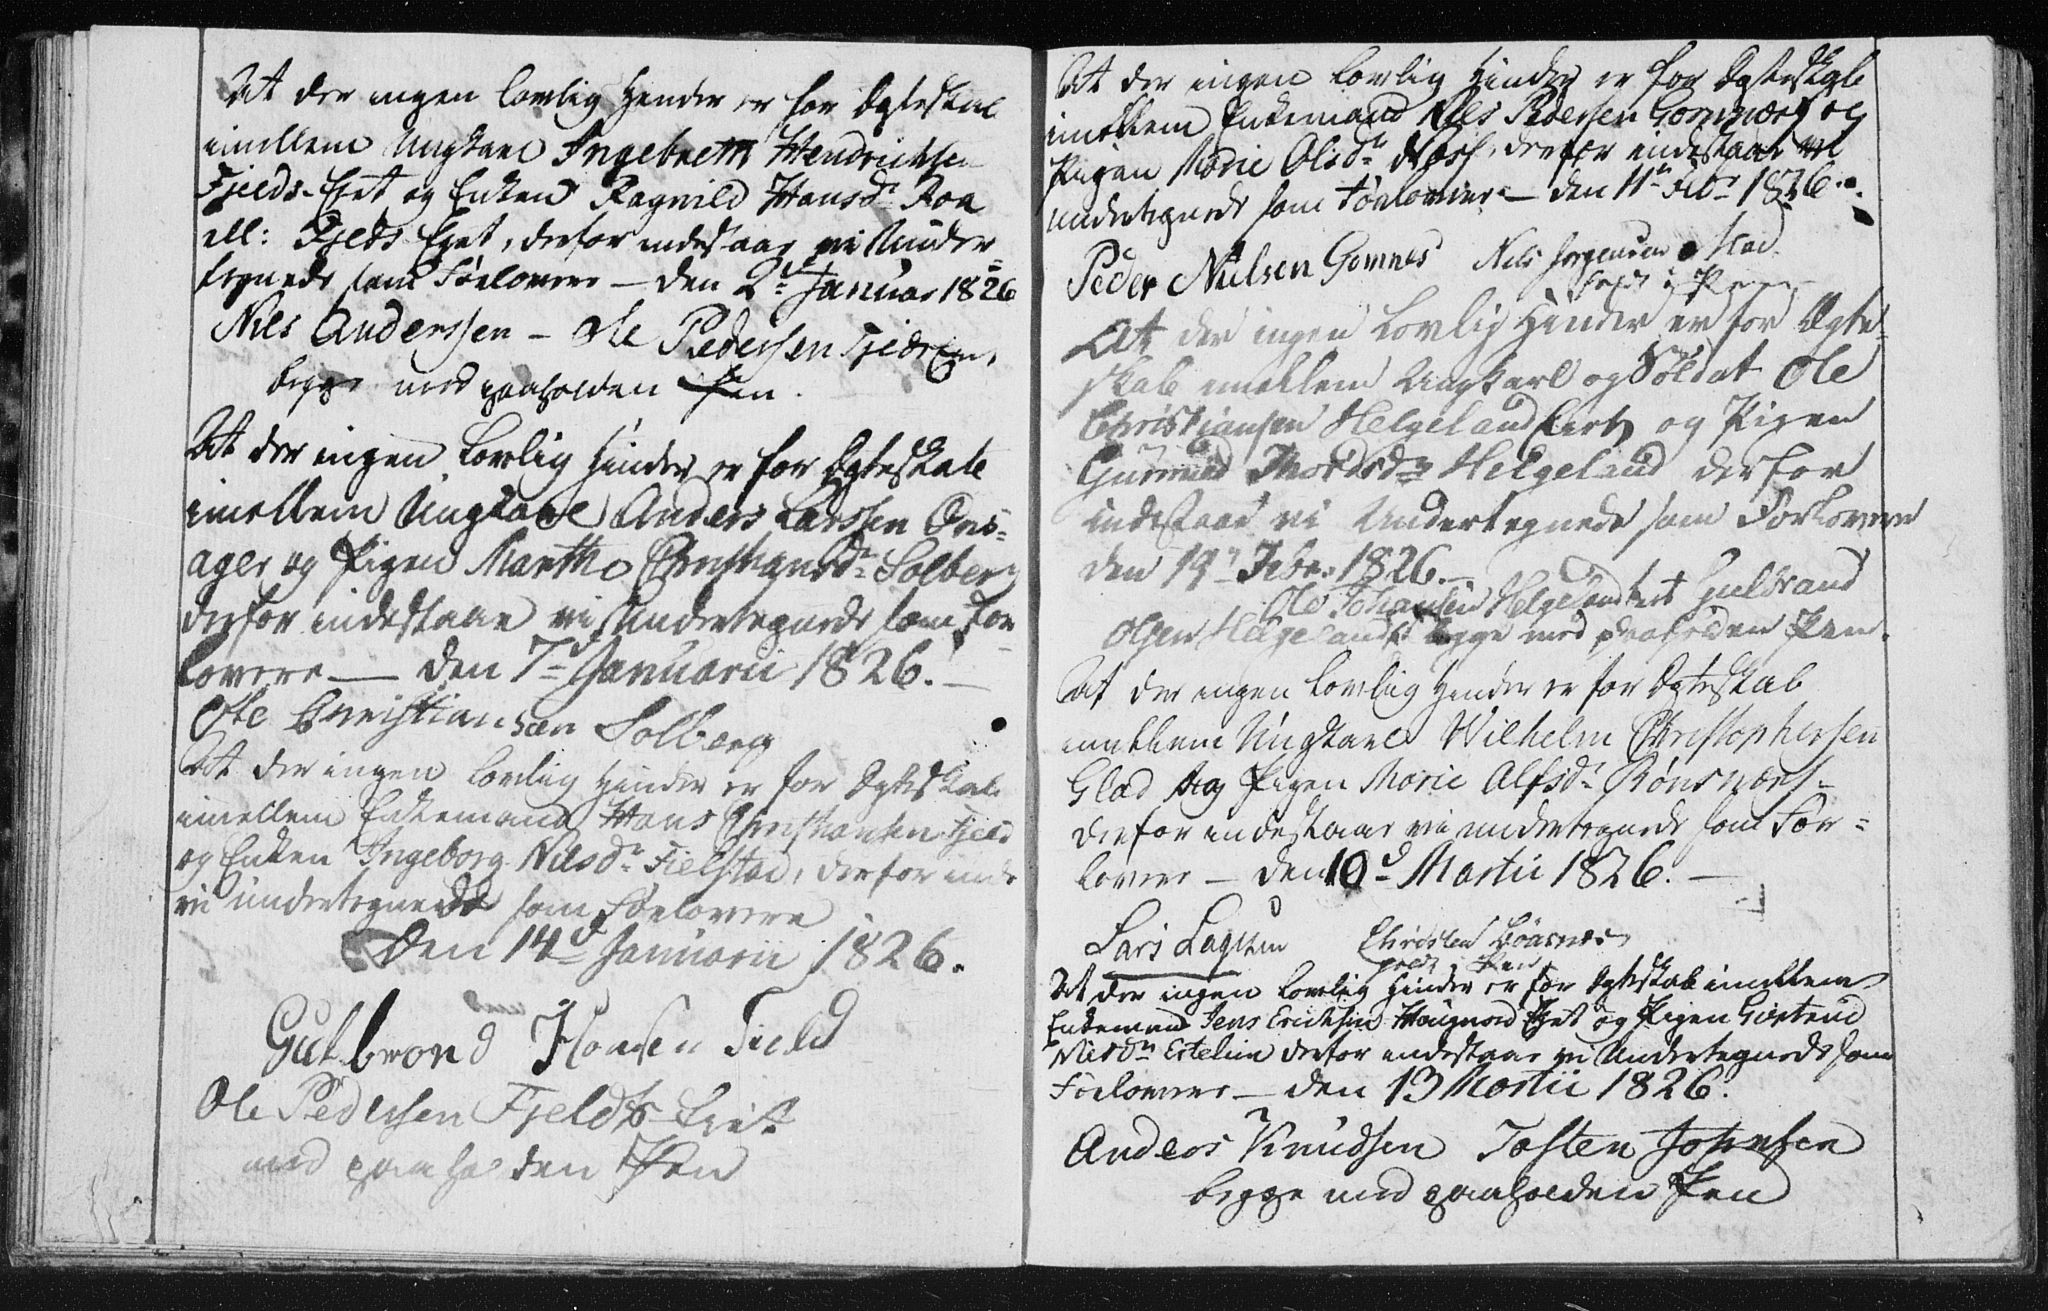 At der ingen lovlig Hinder er for Egteskab
imellem Ungkarl Ingebreth Hendrichsen
Fjelds-Eyet og Enken Ragnild Hansdr Roa
ell: Fjelds Eyet, derfor indestaar vi Under=
tegnede som Forlovere — den 2d Januar 1826
Nils Anderssen – Ole Pedersen Fjelds Eyet,
begge med paaholden Pen.
At der ingen Lovlig Hinder er for Egteskab
imellem Ungkarl Anders Larssen Ons=
ager og Pigen Marthe Christiansdr Solberg
derfor indestaaer vi Undertegnede som For
lovere — den 7d Januarii 1826. —
Ole Christiansen Solberg
At der ingen lovlig Hinder er for Egteskab
imellem Enkemand Hans Christiansen Fjeld
og Enken Ingeborg Nilsdr Fielstad, derfor inde
vi undertegnede som Forlovere
Den 14d Januarii 1826.
Gulbrand Hansen Field
Ole Pedersen Fjelds Eiet
med paaholden Pen
At der ingen lovlig Hinder er for Egteskab
imellem Enkemand Nils Pedersen Gomnæs og
Pigen Marie Olsdr derfor indestaar vi
undertegnede som Forlovere — den 11te Febr 1826.
Peder Nielsen Gomnes Nils Jorgensen
At der ingen Lovlig Hinder er for Egte=
skab imellem Ungkarl og Soldat Ole
Christiansen Helgeland Eiet og Pigen
Gunnild Thordsdr Helgeland derfor
indestaae vi Undertegnede som Forlovere
den 19d Febr. 1826. —
Ole Johansen Helgelands Eiet Gulbrand
Olsen Helgelands begge med paaholden Pen.
At der ingen lovlig Hinder er for Egteskab
imellem Ungkarl Wilhelm Christophersen
Glad og Pigen Marie Alfsdr Rønsnæs –
derfor indestaar vi undertegnede som For=
lovere — den 10d Martii 1826. —
Lars Christen
At der ingen lovlig Hinder er for Egteskab imellem
Enkemand Jens Erichsen Eyet og Pigen Giertrud
Nilsdr derfor indestaar vi Undertegnede som
Forlovere — den 13 Martii 1826.
Anders Knudsen Tosten Johnsen
begge med paaholden Pen